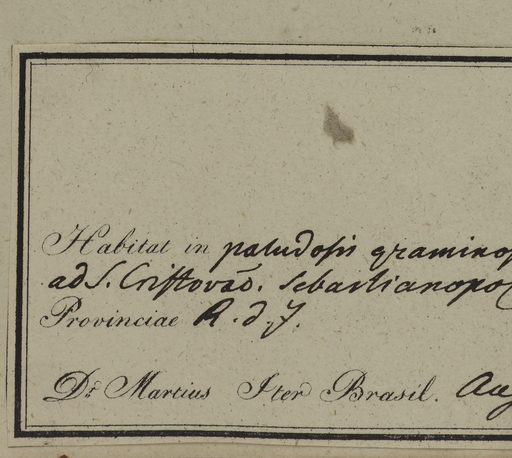 Habitat in paludosis graminos
ad S. Cristovaõ. Sebastianopol
Provinciae R. d. J.
Dr. Martius Iter Brasil. Aug